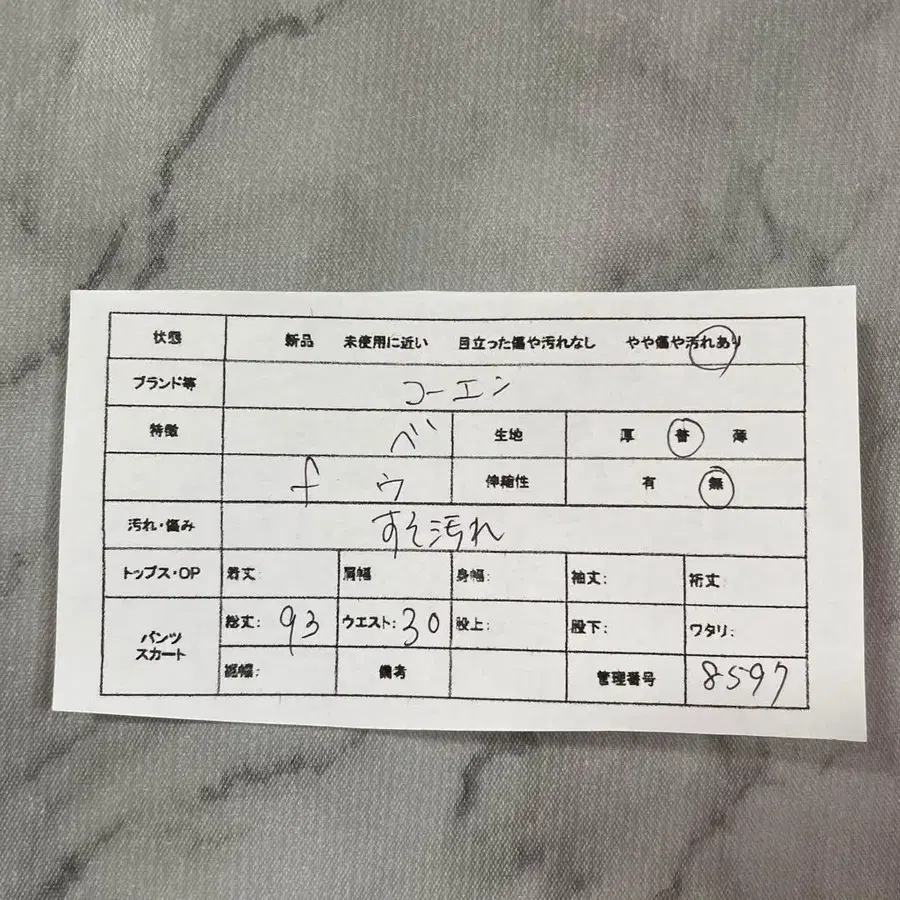 状態 新品 未使用に近い 目立った傷や汚れなし やや傷や汚れあり
ブランド等 コーエン
特徴 ベ 生地 厚 普 薄
f ウ 伸縮性 有 無
汚れ・傷み すそ汚れ
トップス・OP 着丈: 肩幅 身幅: 袖丈: 裄丈:
パンツ スカート 総丈: 93 ウエスト: 30 股上: 股下: ワタリ:
裾幅: 備考 管理番号 8597